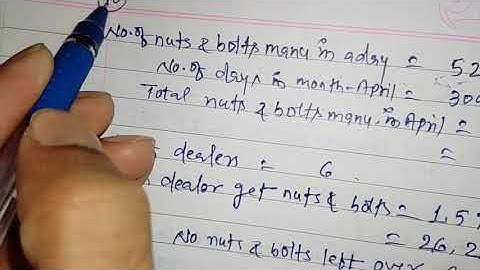 No. of nuts & bolts manu in a day = 52
No. of days in month-April = 30
Total nuts & bolts manu. in April =
=
dealers = 6
dealor get nuts & bolts = 1,5
= 26,2
No nuts & bolts left over